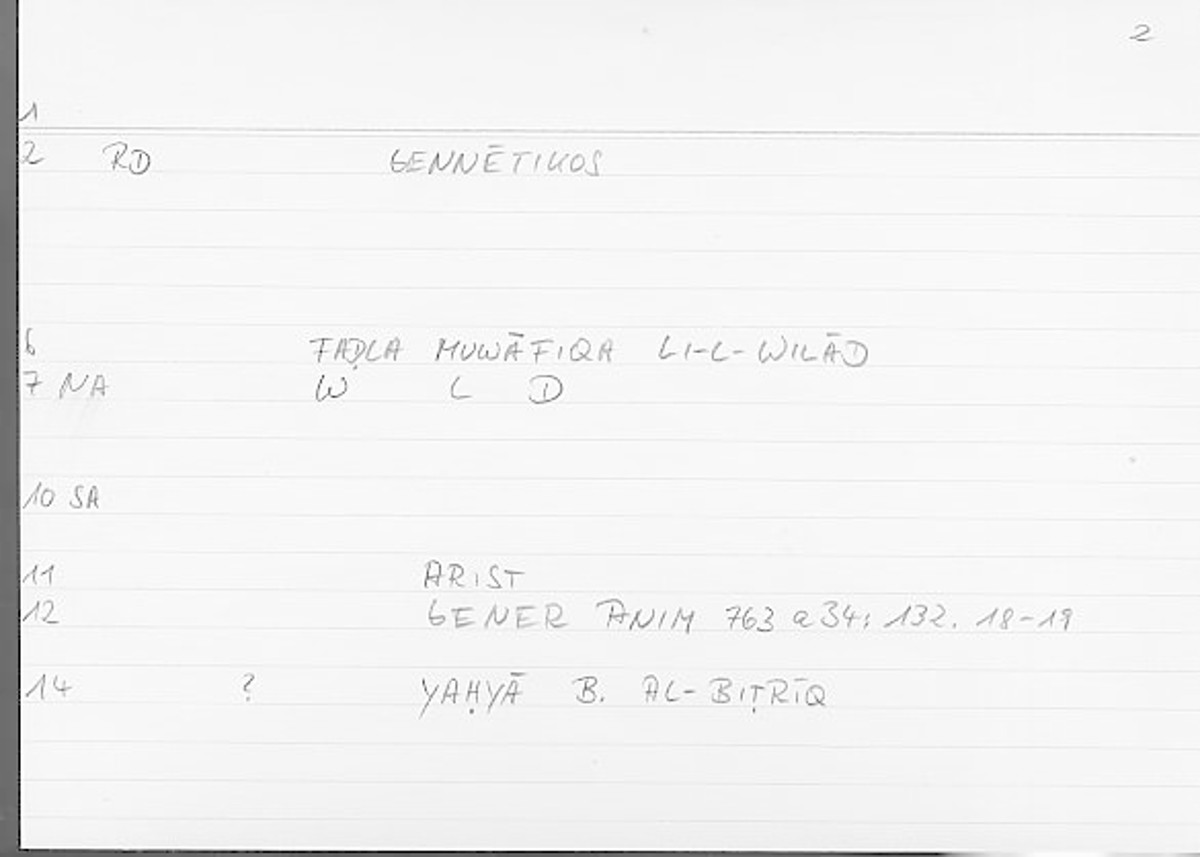 2
1
2 RD GENNĒTIKOS
6 FAḌLA MUWĀFIQA LI-L-WILĀD
7 NA W L D
10 SA
11 ARIST
12 GENER ANIM 763 a 34; 132. 18-19
14 ? YAḤYĀ B. AL-BIṬRĪQ